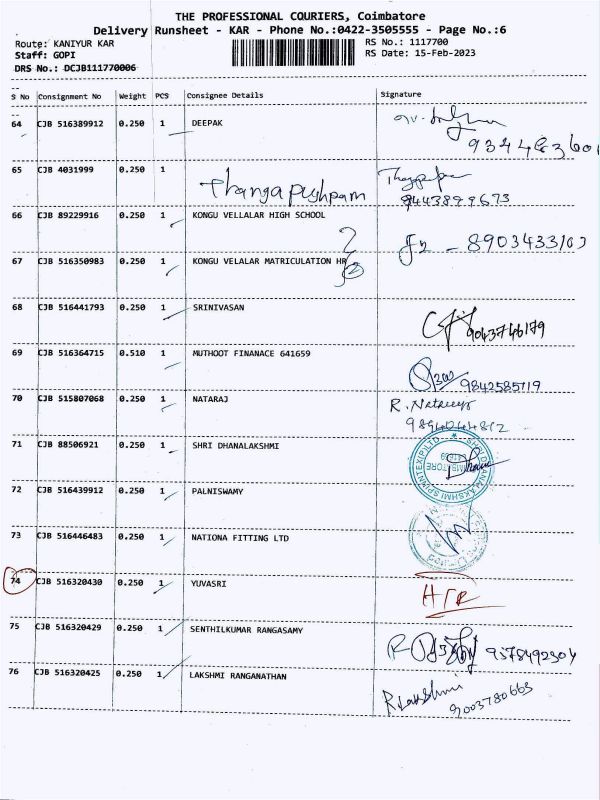 THE PROFESSIONAL COURIERS, Coimbatore
Delivery Runsheet - KAR - Phone No.:0422-3505555 - Page No.:6
Route: KANIYUR KAR RS No.: 1117700
Staff: GOPI RS Date: 15-Feb-2023
DRS No.: DCJB111770006
S No Consignment No Weight PCS Consignee Details Signature
64 CJB 516389912 0.250 1 DEEPAK
65 CJB 4031999 0.250 1 Thangapushpam
9443899673
66 CJB 89229916 0.250 1 KONGU VELLALAR HIGH SCHOOL
8903433103
67 CJB 516350983 0.250 1 KONGU VELALAR MATRICULATION HR
68 CJB 516441793 0.250 1 SRINIVASAN
9043746179
69 CJB 516364715 0.510 1 MUTHOOT FINANACE 641659
9842585719
70 CJB 515807068 0.250 1 NATARAJ R.
9894044812
71 CJB 88506921 0.250 1 SHRI DHANALAKSHMI
72 CJB 516439912 0.250 1 PALNISWAMY
73 CJB 516446483 0.250 1 NATIONA FITTING LTD
74 CJB 516320430 0.250 1 YUVASRI
75 CJB 516320429 0.250 1 SENTHILKUMAR RANGASAMY
9578492304
76 CJB 516320425 0.250 1 LAKSHMI RANGANATHAN R Lakshmi
9003780663